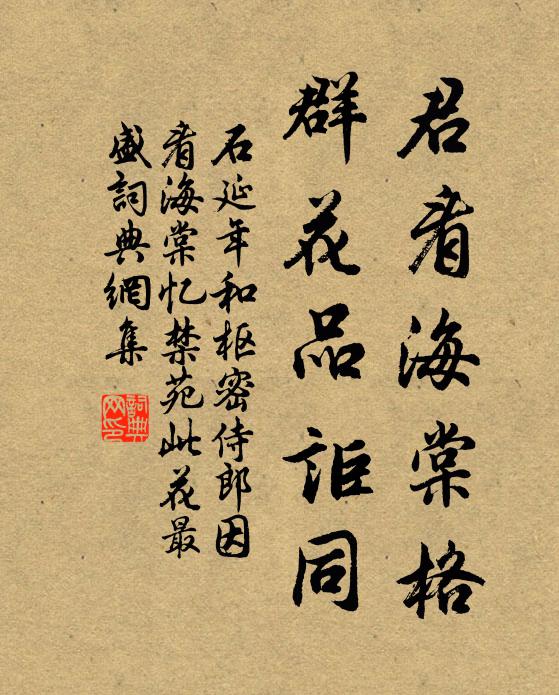 君看海棠格
群花品詎同
石延年和枢密侍郎因
看海棠忆禁苑此花最
盛詞典網集
詞典
网印